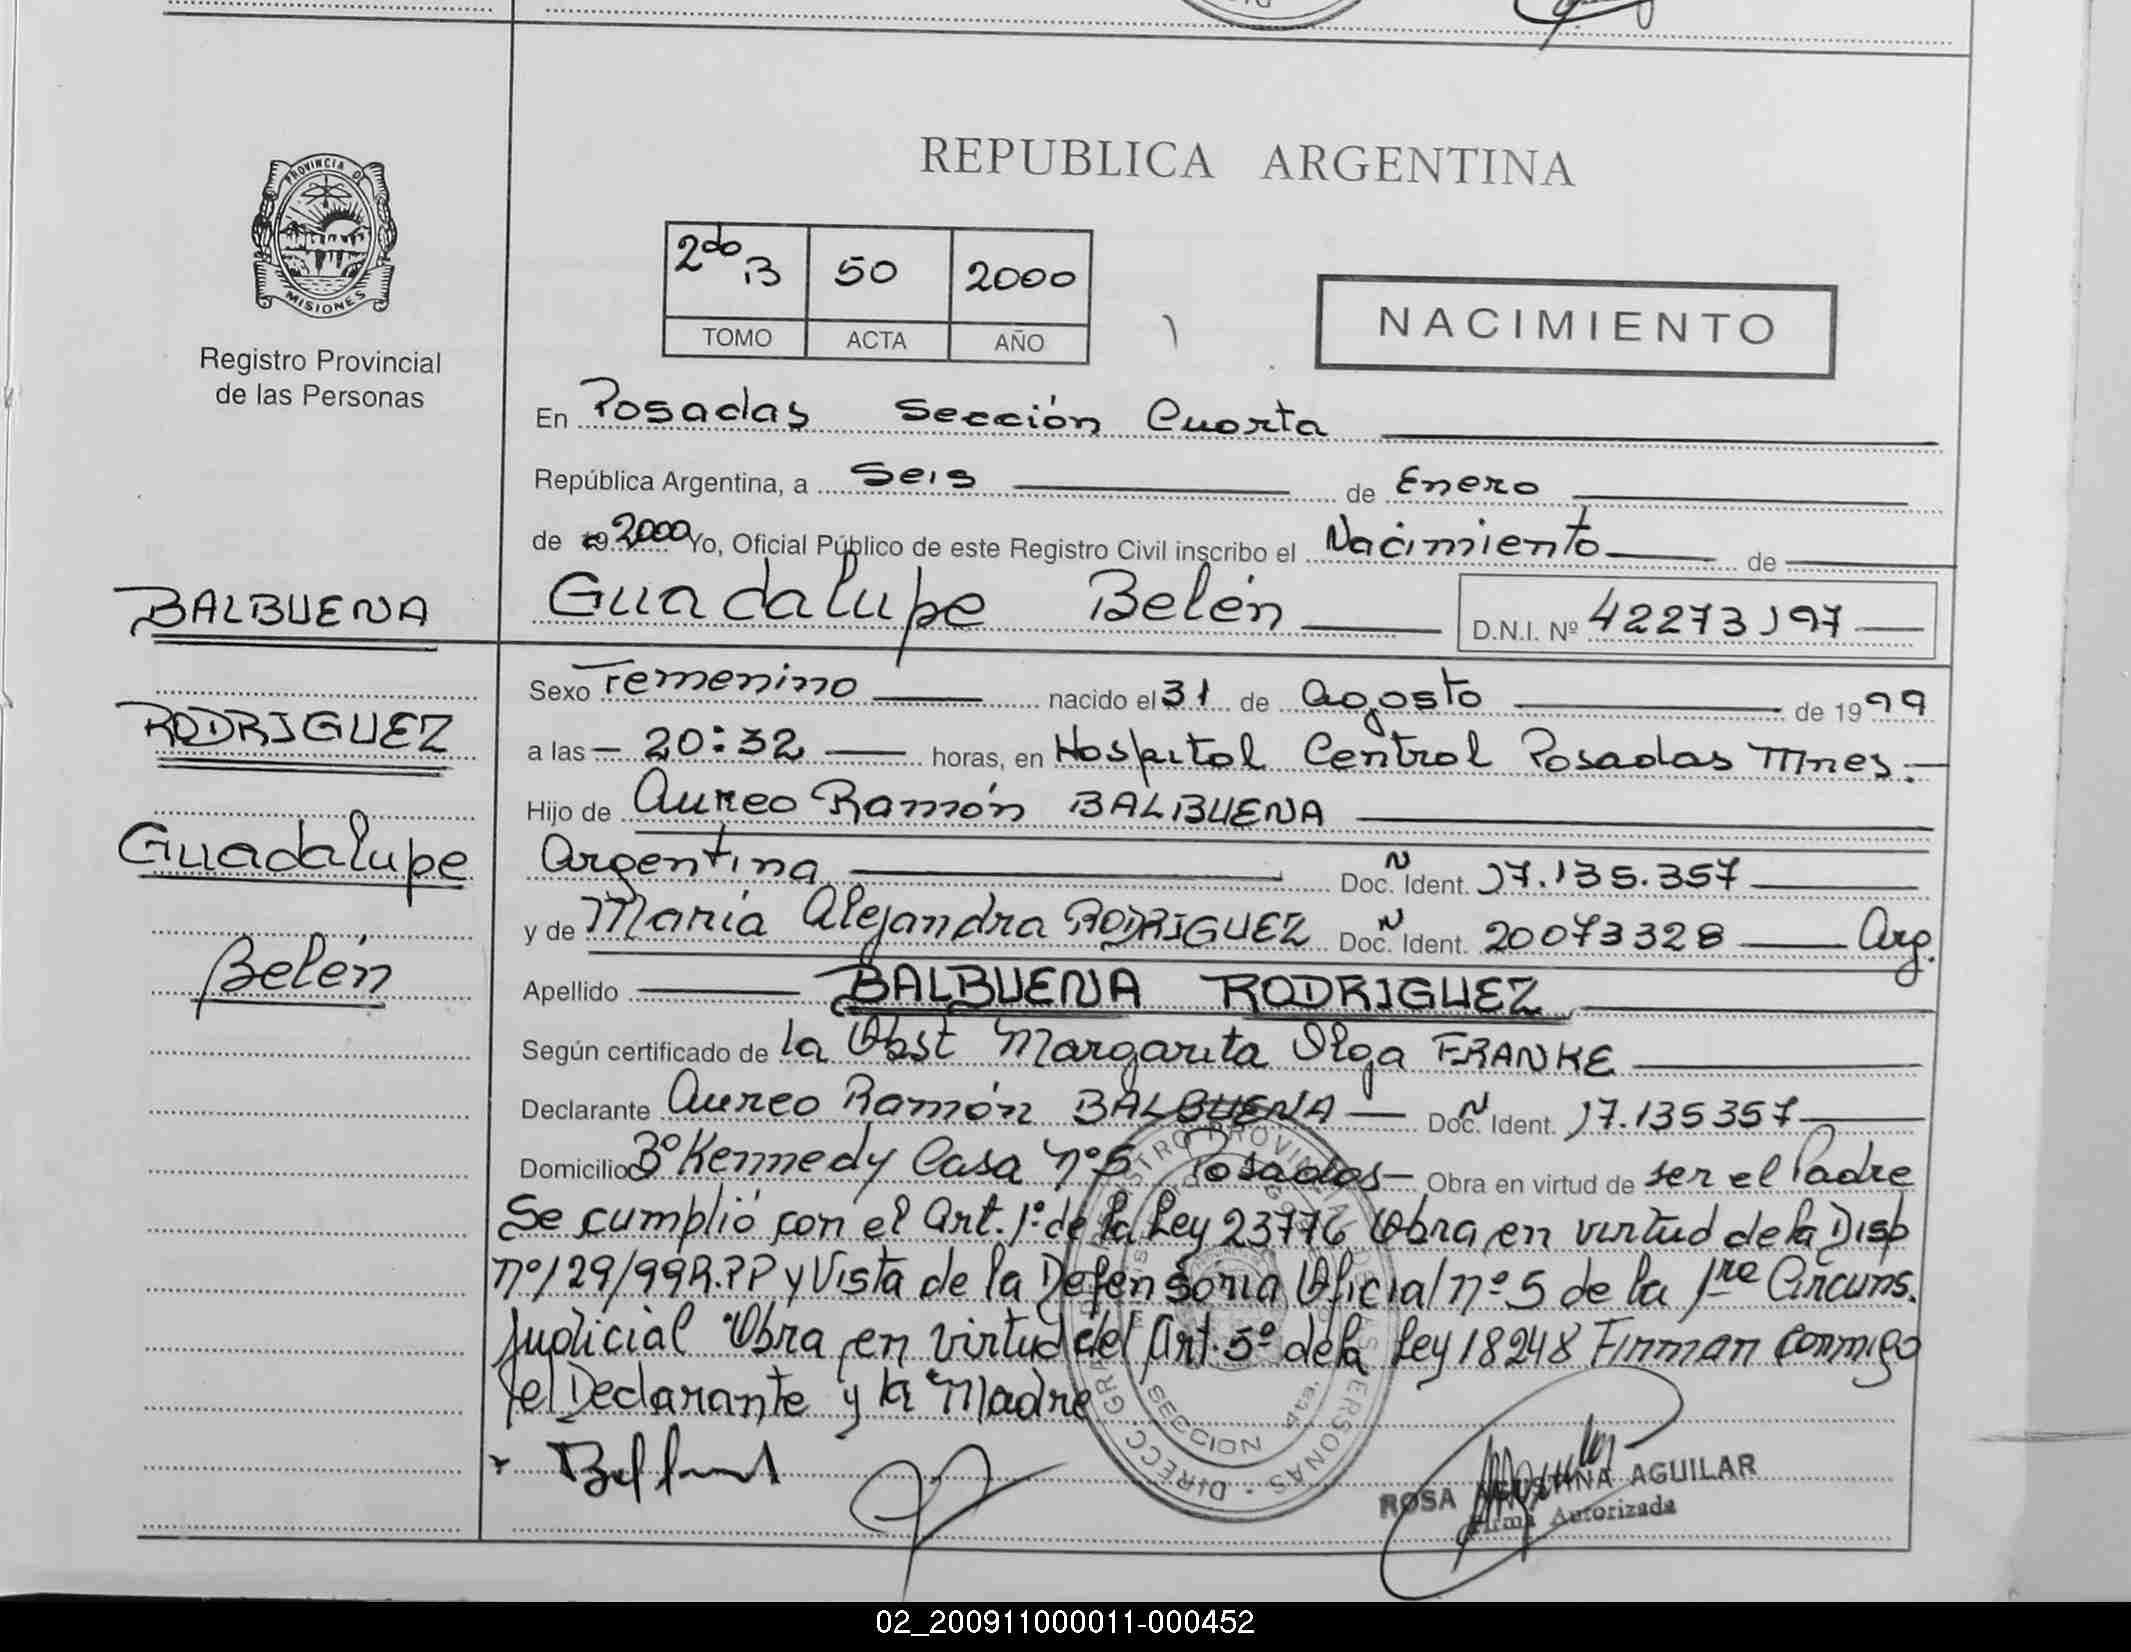 PROVINCIA DE
MISIONES
Registro Provincial
de las Personas
BALBUENA
RODRIGUEZ
Guadalupe
Belén
REPUBLICA ARGENTINA
2do B 50 2000
TOMO ACTA AÑO
NACIMIENTO
En Posadas Sección Cuarta
República Argentina, a Seis de Enero
de 19 2000 Yo, Oficial Público de este Registro Civil inscribo el Nacimiento de
Guadalupe Belén D.N.I. Nº 42273197
Sexo Femenino nacido el 31 de Agosto de 1999
a las 20:32 horas, en Hospital Central Posadas Mnes.
Hijo de Aureo Ramón BALBUENA
Argentina Doc. Ident. N 17.135.357
y de María Alejandra RODRIGUEZ Doc. Ident. N 20073328 Arg.
Apellido BALBUENA RODRIGUEZ
Según certificado de la Obst Margarita Olga FRANKE
Declarante Aureo Ramón BALBUENA Doc. Ident. N 17.135357
Domicilio Bº Kennedy Casa nº 5 Posadas Obra en virtud de ser el Padre
Se cumplió con el Art. 1º de la Ley 23776 Obra en virtud de la Disp
nº 129/99 R.P.P y Vista de la Defensoria Oficial nº 5 de la 1ra Circuns.
Judicial Obra en virtud del Art. 5º de la Ley 18248 Firman conmigo
el Declarante y la Madre
ROSA AGUSTINA AGUILAR
Firma Autorizada
02_200911000011-000452